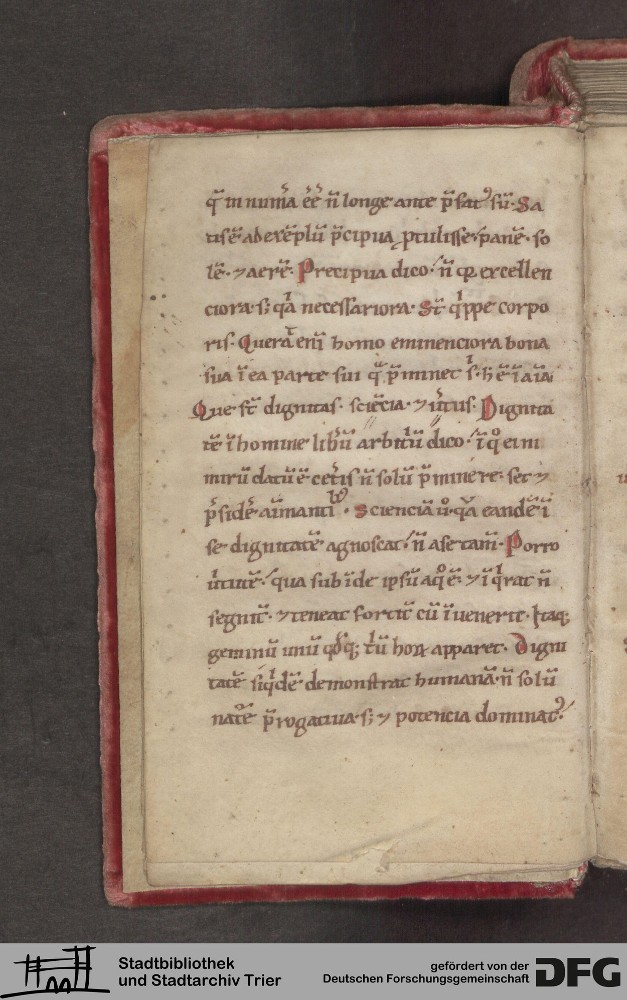 q̄ innum̄a ēē n̄ longe ante p̄fat᷒ sū. Sa
tis ē ad exēplū p̄cipua ꝓtulisse. panē. so
lē. ⁊ aerē. Precipua dico. n̄ qđ excellen
ciora. s; qͥa necessariora. St̄ qͥppe corpo
ris. Querat enī homo eminenciora bona
sua ī ea parte sui q̄ p̄minet sͥ. h̄ ē aīa
Que st̄ dignitas. sciēcia. ⁊ v̄tus. Dignita
tē ī homine libū arbitͥū dico. ī qͦ ei ni
mirū datū ē cet̄is n̄ solū p̄minere. set ⁊
p̄sidē aīmantib᷒. Scienciā ů. qͣ eandē ī
se dignitatē agnoscat. n̄ a se tam̄. Porro
v̄tutē. qua subīde ipsū a qͦ ē. ⁊ īqͥrat n̄
segnit̄. ⁊ teneat fortit̄ cū īvenerit. Itaq;
geminū unū qͦdq; tͥū hoꝝ apparet. Digni
tatē siqͥdē demonstrat humanā. n̄ solū
nat̄e p̄rogatiua. s; ⁊ potencia dominat᷒.
Stadtbibliothek
und Stadtarchiv Trier
gefördert von der
Deutschen Forschungsgemeinschaft
DFG